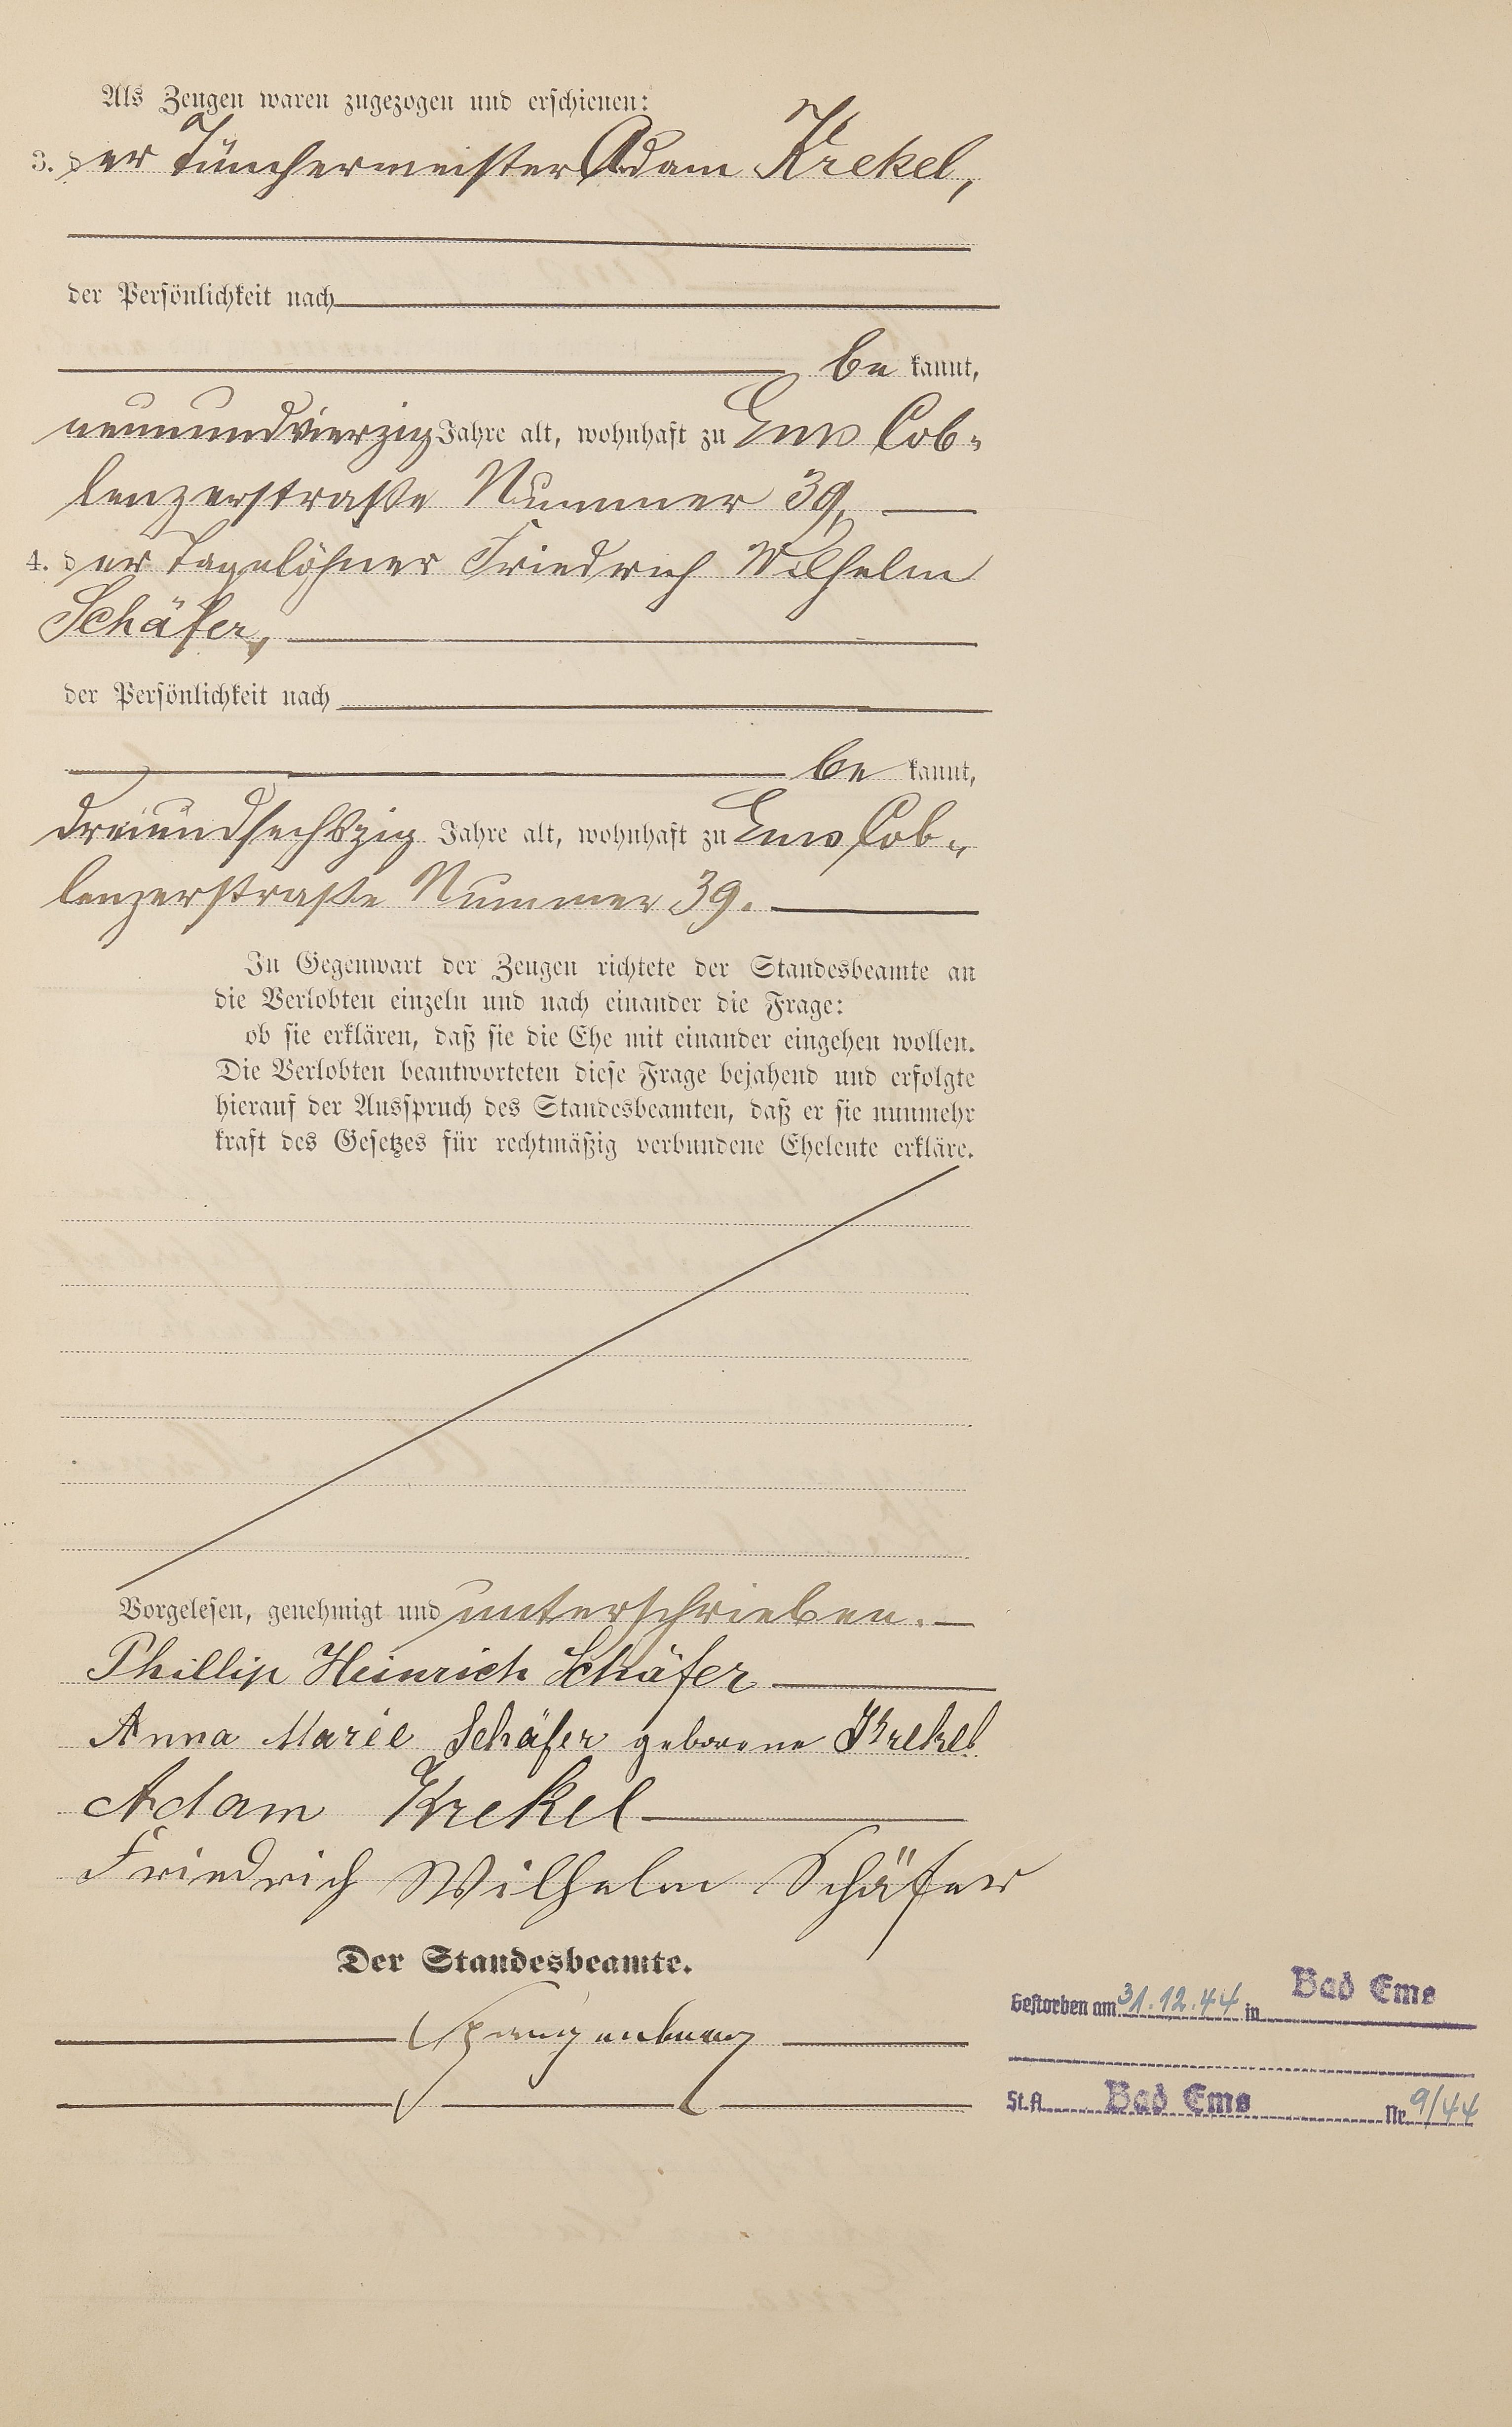 Als Zeugen waren zugezogen und erschienen:
3. der Tünchermeister Adam Krekel,
der Persönlichkeit nach
be kannt,
neunundvierzig Jahre alt, wohnhaft zu Ems Cob-
lenzerstraße Nummer 39,
4. der Tagelöhner Friedrich Wilhelm
Schäfer,
der Persönlichkeit nach
be kannt,
dreiundsechszig Jahre alt, wohnhaft zu Ems Cob-
lenzerstraße Nummer 39.
In Gegenwart der Zeugen richtete der Standesbeamte an
die Verlobten einzeln und nach einander die Frage:
ob sie erklären, daß sie die Ehe mit einander eingehen wollen.
Die Verlobten beantworteten diese Frage bejahend und erfolgte
hierauf der Ausspruch des Standesbeamten, daß er sie nunmehr
kraft des Gesetzes für rechtmäßig verbundene Eheleute erkläre.
Vorgelesen, genehmigt und unterschrieben.
Phillip Heinrich Schäfer
Anna Marie Schäfer geborene Krekel.
Adam Krekel
Friedrich Wilhelm Schäfer
Der Standesbeamte.
Spangenberg
Gestorben am 31.12.44 in Bad Ems
St.A. Bad Ems Nr. 9/44